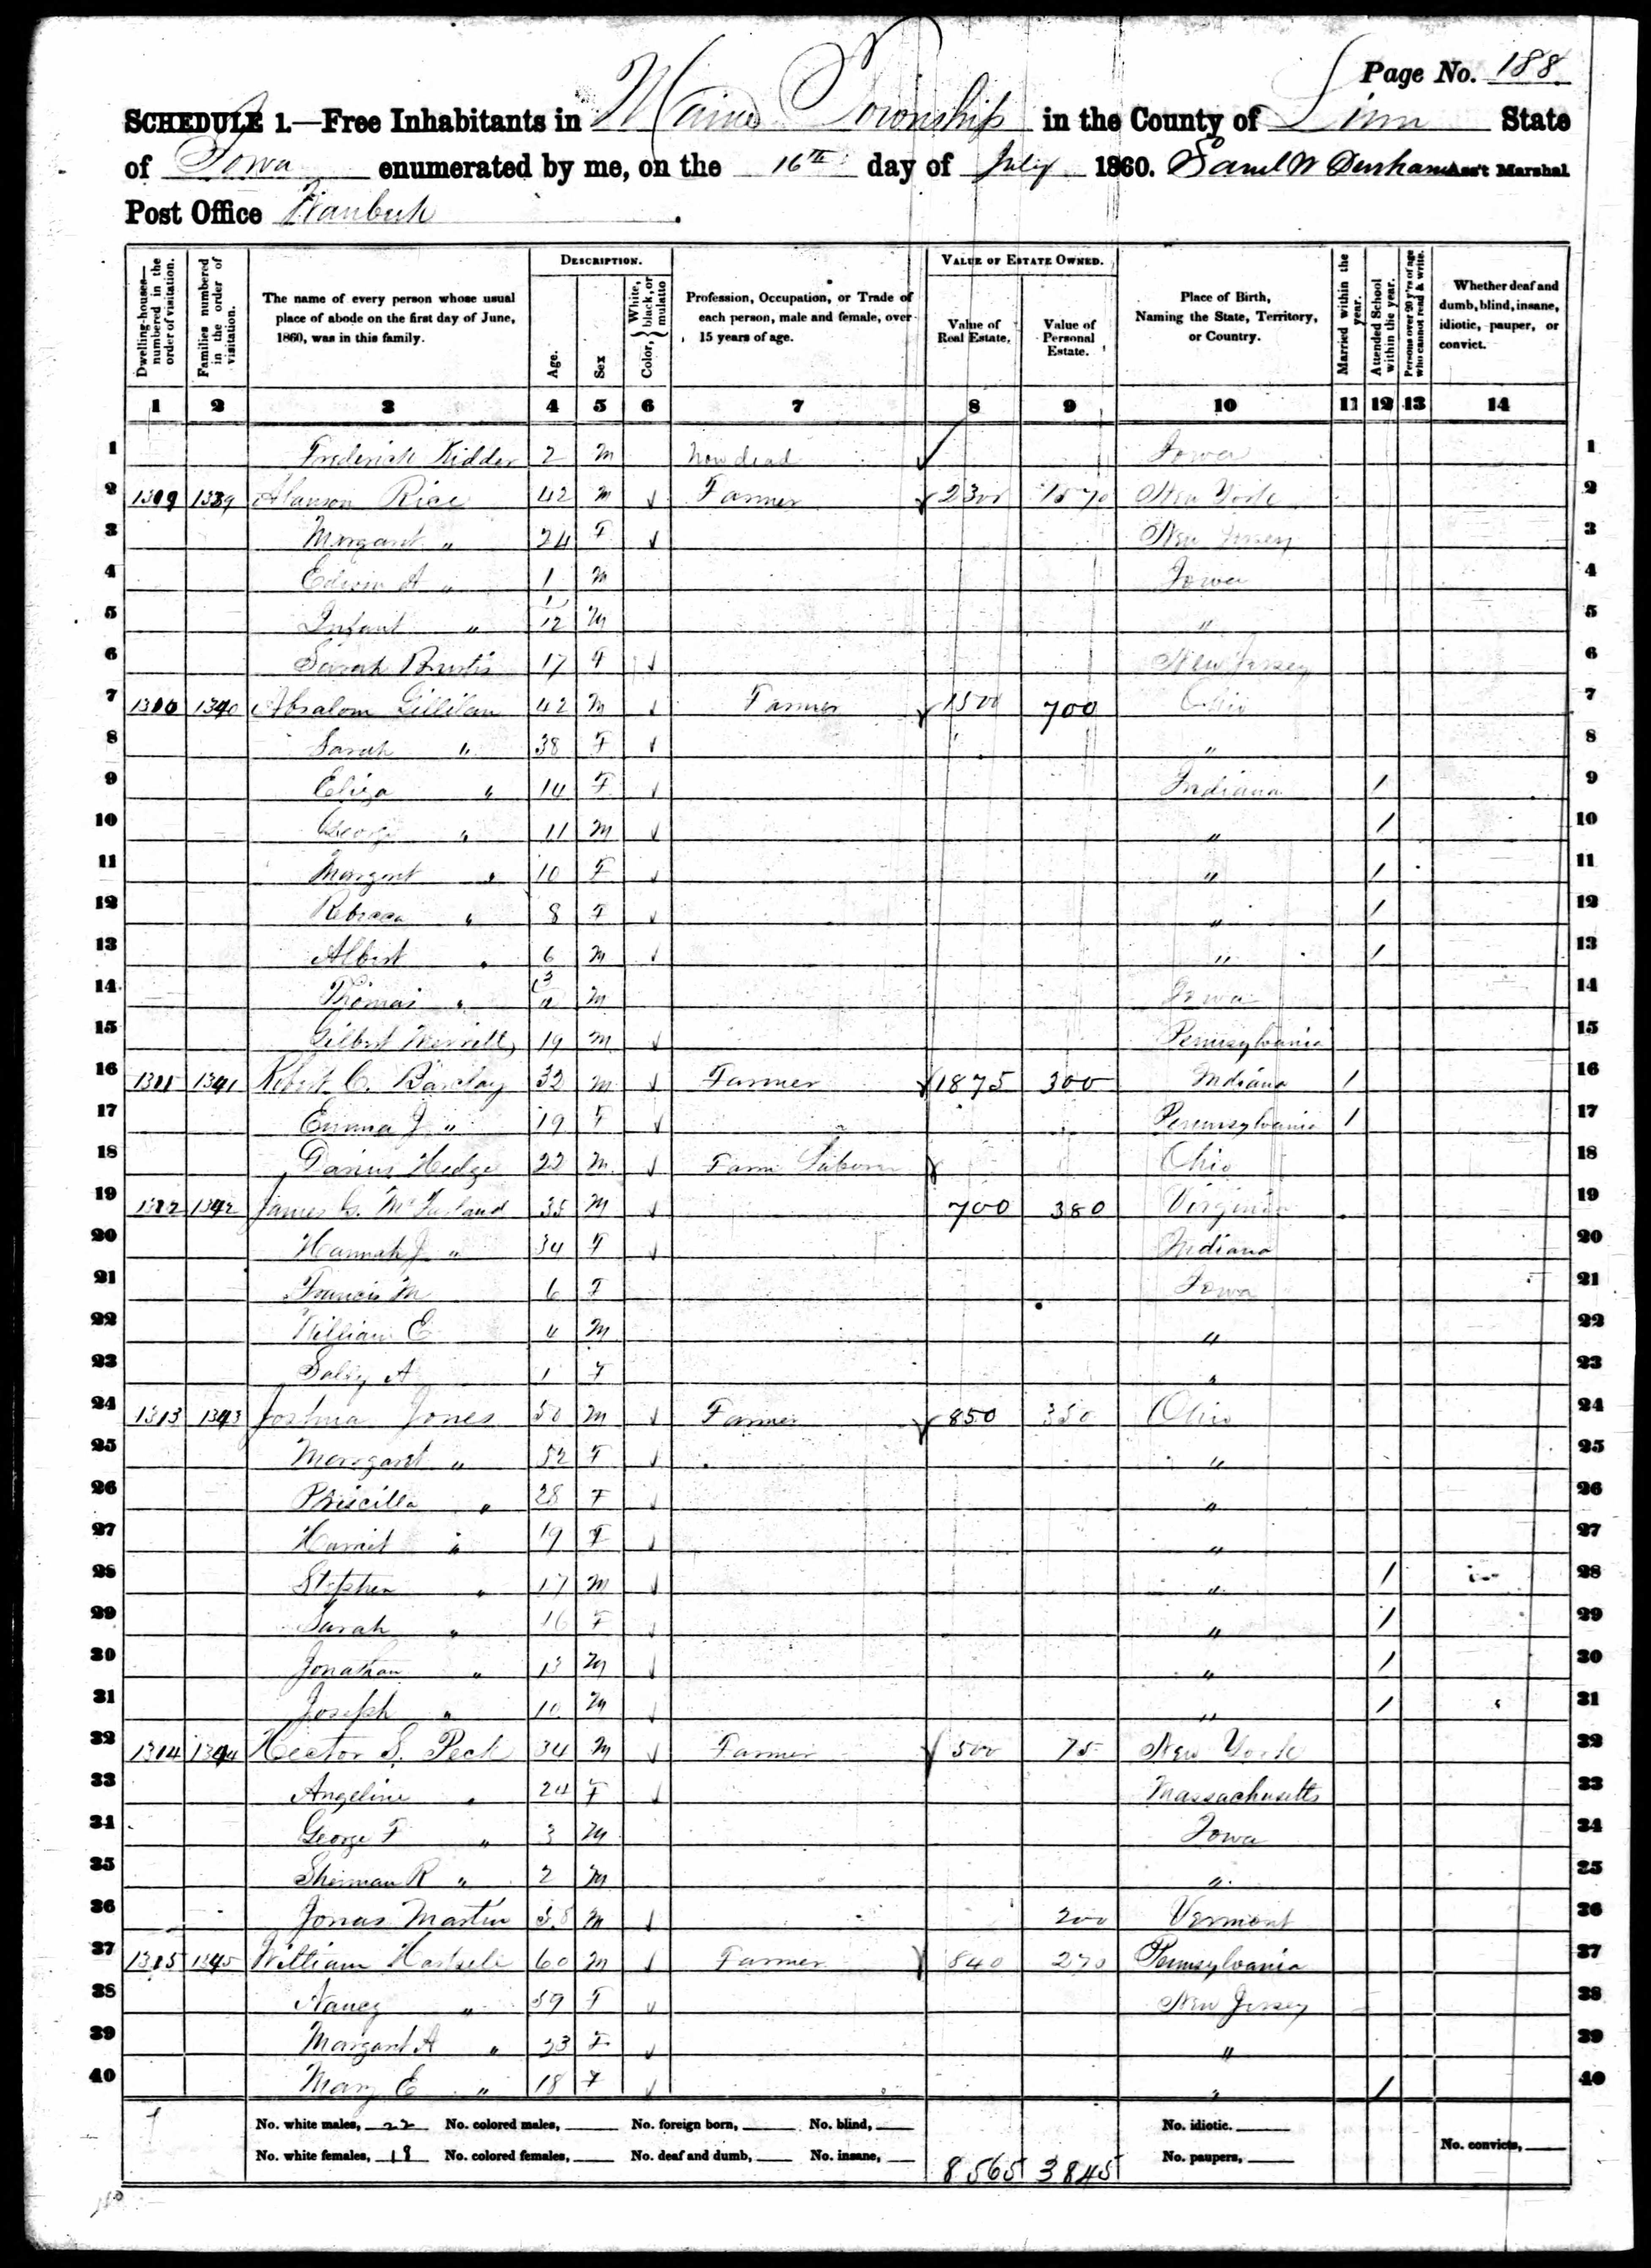 Page No. 188
SCHEDULE 1.—Free Inhabitants in Maine Township in the County of Linn State
of Iowa enumerated by me, on the 16th day of July 1860. Saml W Durham Ass't Marshal
Post Office
Dwelling-houses—numbered in the order of visitation.
Families numbered in the order of visitation.
The name of every person whose usual place of abode on the first day of June, 1860, was in this family.
DESCRIPTION.
Age.
Sex
Color, { White, black, or mulatto
Profession, Occupation, or Trade of each person, male and female, over 15 years of age.
VALUE OF ESTATE OWNED.
Value of Real Estate.
Value of Personal Estate.
Place of Birth, Naming the State, Territory, or Country.
Married within the year.
Attended School within the year.
Persons over 20 y'rs of age who cannot read & write.
Whether deaf and dumb, blind, insane, idiotic, pauper, or convict.
1 2 3 4 5 6 7 8 9 10 11 12 13 14
1 Frederick Kidder 2 M Now dead Iowa 1
2 1339 Alanson Rice 42 M Farmer 2300 New York 2
3 Margaret " 24 F New Jersey 3
4 Edwin A " 1 M Iowa 4
5 Infant " 1/12 M " 5
6 Sarah 17 F New Jersey 6
7 1340 Absalom Gillilan 42 M Farmer 1500 700 Ohio 7
8 Sarah " 38 F " 8
9 Eliza " 14 F Indiana / 9
10 George " 11 M " / 10
11 Margaret " 10 F " / 11
12 Rebecca " 8 F " / 12
13 Albert " 6 M " / 13
14 Thomas " M Iowa 14
15 Gilbert Merrill 19 M Pennsylvania 15
16 1341 Robert C. Barclay 32 M Farmer 1875 300 Indiana / 16
17 Emma J " 19 F Pennsylvania / 17
18 Darius Hedge 22 M Farm Laborer Ohio 18
19 1342 James G. 35 M 700 380 Virginia 19
20 Hannah J " 34 F Indiana 20
21 Francis M 6 F Iowa 21
22 William E 4 M " 22
23 Sally A 1 F " 23
24 1313 1343 Joshua Jones 50 M Farmer 850 350 Ohio 24
25 Margaret " 52 F " 25
26 Priscilla " 28 F " 26
27 Harriet " 19 F " 27
28 Stephen " 17 M " / 28
29 Sarah " 16 F " / 29
30 Jonathan " 13 M " / 30
31 Joseph " 10 M " / 31
32 1314 1344 Hector S. Peck 34 M Farmer 500 75 New York 32
33 Angeline " 24 F Massachusetts 33
34 George F " 3 M Iowa 34
35 Sherman R " 2 M " 35
36 Jonas Martin 58 M 200 Vermont 36
37 1315 1345 William 60 M Farmer 840 270 Pennsylvania 37
38 Nancy " 59 F New Jersey 38
39 Margaret A " 23 F " 39
40 Mary E " 18 F " / 40
No. white males, 22 No. colored males, No. foreign born, No. blind, No. idiotic.
No. white females, 18 No. colored females, No. deaf and dumb, No. insane, 8565 3845 No. paupers, No. convicts,